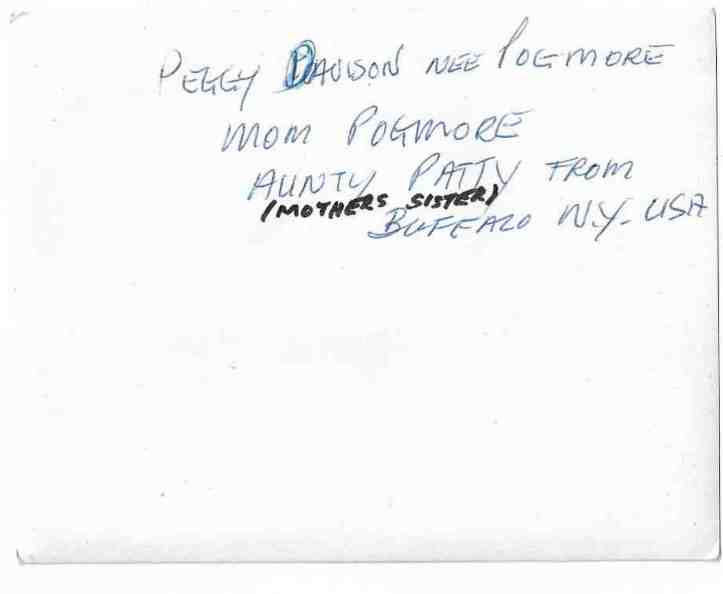 PEGGY DAVISON NEE POGMORE
MOM POGMORE
AUNTY PATTY FROM
(MOTHERS SISTER)
BUFFALO N.Y. USA